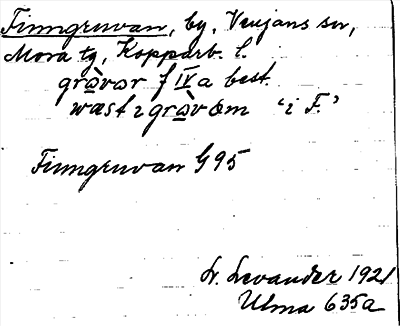 Finngruvan, by, Venjans sn,
Mora tg, Kopparb. l.
grǫ̀vor f IV a best.
wæst ı grǫ̀vom 'i F.'
Finngruvan G 95
L. Levander 1921
Ulma 635a